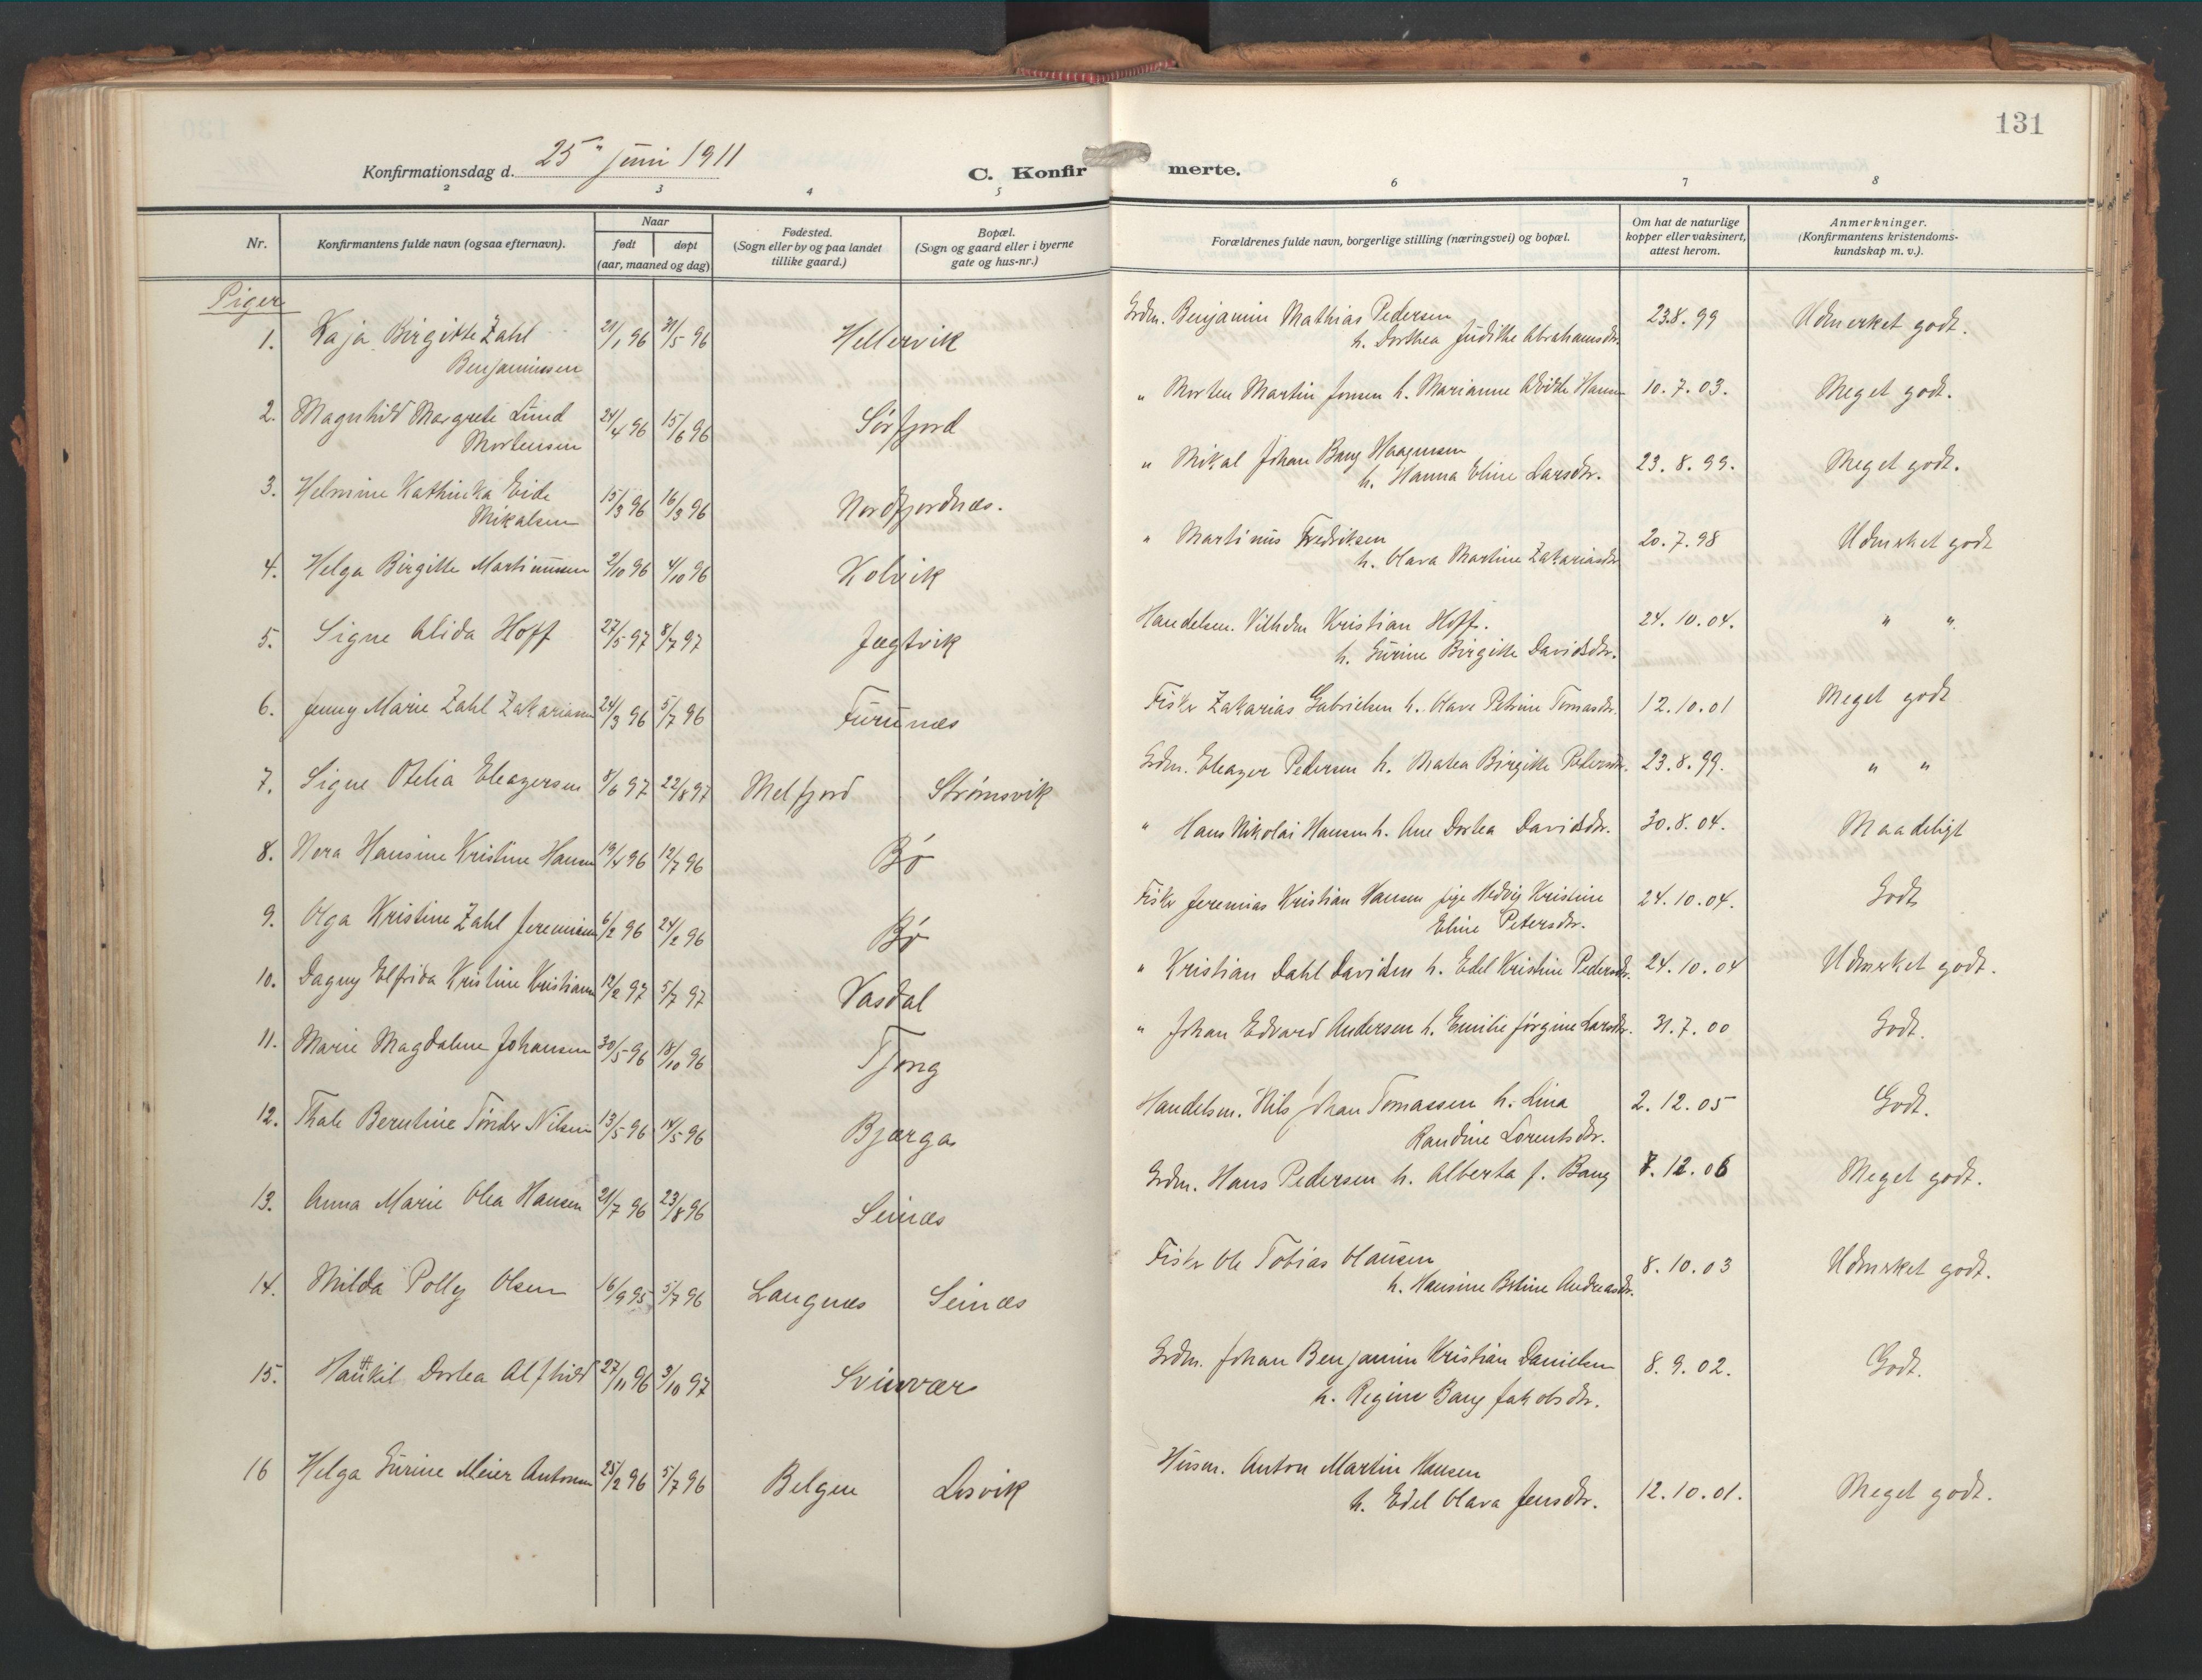 131
Konfirmationsdag d. 25" juni 1911
C. Konfirmerte.
2 3 4 5 6 7 8
Nr.
Konfirmantens fulde navn (ogsaa efternavn).
Naar
født døpt
(aar, maaned og dag)
Fødested.
(Sogn eller by og paa landet
tillike gaard.)
Bopæl.
(Sogn og gaard eller i byerne
gate og hus-nr.)
Forældrenes fulde navn, borgerlige stilling (næringsvei) og bopæl.
Om hat de naturlige
kopper eller vaksinert,
attest herom.
Anmerkninger.
(Konfirmantens kristendoms-
kundskap m. v.).
Piger
1. Kaja Birgitte Zahl 21/1 96 31/5 96 Hellervik Grdm. Benjamin Mathias Pedersen 23.8.99 Udmerket godt.
Benjaminsen h. Dorthea Judithe Abrahamsdtr.
2. Magnhild Margrete Lund 24/4 96 15/6 96 Sørfjord " Morten Martin Jonsen h. Marianne Hansen 10.7.03. Meget godt.
Mortensen
3. Helmine Kathinka Eide 15/3 96 16/3 96 Nordfjordnæs. " Mikal Johan Bang Haagensen 23.8.99. Meget godt.
Mikalsen h. Hanna Eline Larsdtr.
4. Helga Birgitte Martinussen 2/10 96 4/10 96 Kolvik " Martinus Fredriksen 20.7.98 Udmerket godt
h. Olava Martine Zakariasdtr.
5. Signe Alida Hoff 27/5 97 8/7 97 Jægtvik Handelsm. Vilhelm Kristian Hoff. 24.10.04. " "
h. Gurine Birgitte Davidsdtr.
6. Jenny Marie Zahl Zakariassen 24/3 96 5/7 96 Furunæs Fisker Zakarias Gabrielsen h. Olave Petrine Tomasdtr. 12.10.01 Meget godt
7. Signe Otelia Eleazersen 8/6 97 22/8 97 Melfjord Strømsvik Grdm. Eleazer Pedersen h. Matea Birgitte Petersdtr. 23.8.99. " "
8. Nora Hansine Kristine Hansen 19/4 96 12/7 96 Bø " Hans Nikolai Hansen h. Ane Dortea Davidsdtr. 30.8.04. Maadeligt
9. Olga Kristine Zahl Jeremiassen 6/2 96 24/2 96 Bø Fisker Jeremias Kristian Hansen pige Hedvig Kristine 24.10.04. Godt
Eline Petersdtr.
10. Dagny Elfrida Kristine Kristiansen 12/2 97 5/7 97 Vasdal " Kristian Dahl Davidsen h. Edel Kristine Pedersdtr. 24.10.04 Udmerket godt.
11. Marie Magdalene Johansen 30/5 96 18/10 96 Tjong " Johan Edvard Andersen h. Emilie Jørgine Larsdtr. 31.7.00 Godt.
12. Thale Berntine Tønder Nilsen 13/5 96 14/5 96 Bjærga Handelsm. Nils Johan Tomassen h. Lina 2.12.05 Godt.
Randine Lorentsdtr.
13. Anna Marie Olea Hansen 21/7 96 23/8 96 Seinæs Grdm. Hans Pedersen h. Alberta J. Bang 8.12.06 Meget godt.
14. Milda Polly Olsen 16/9 95 5/7 96 Langnæs Seinæs Fisker Ole Tobias Olaussen 8.10.03 Udmerket godt.
h. Hansine Betine Andreasdtr.
15. Dortea Alfhild 27/11 96 3/10 97 Svinvær Grdm. Johan Benjamin Kristian Danielsen 8.9.02. Godt.
h. Regine Bang Jakobsdtr.
16 Helga Gurine Meier Antonsen 25/2 96 5/7 96 Belgen Løsvik Husm. Anton Martin Hansen 12.10.01. Meget godt.
h. Edel Olava Jensdtr.